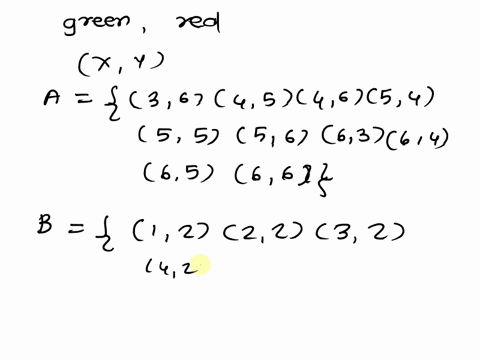 green, red
(x, y)
A = { (3,6) (4,5) (4,6) (5,4)
(5, 5) (5,6) (6,3) (6,4)
(6,5) (6,6) }
B = { (1,2) (2,2) (3,2)
(4,2